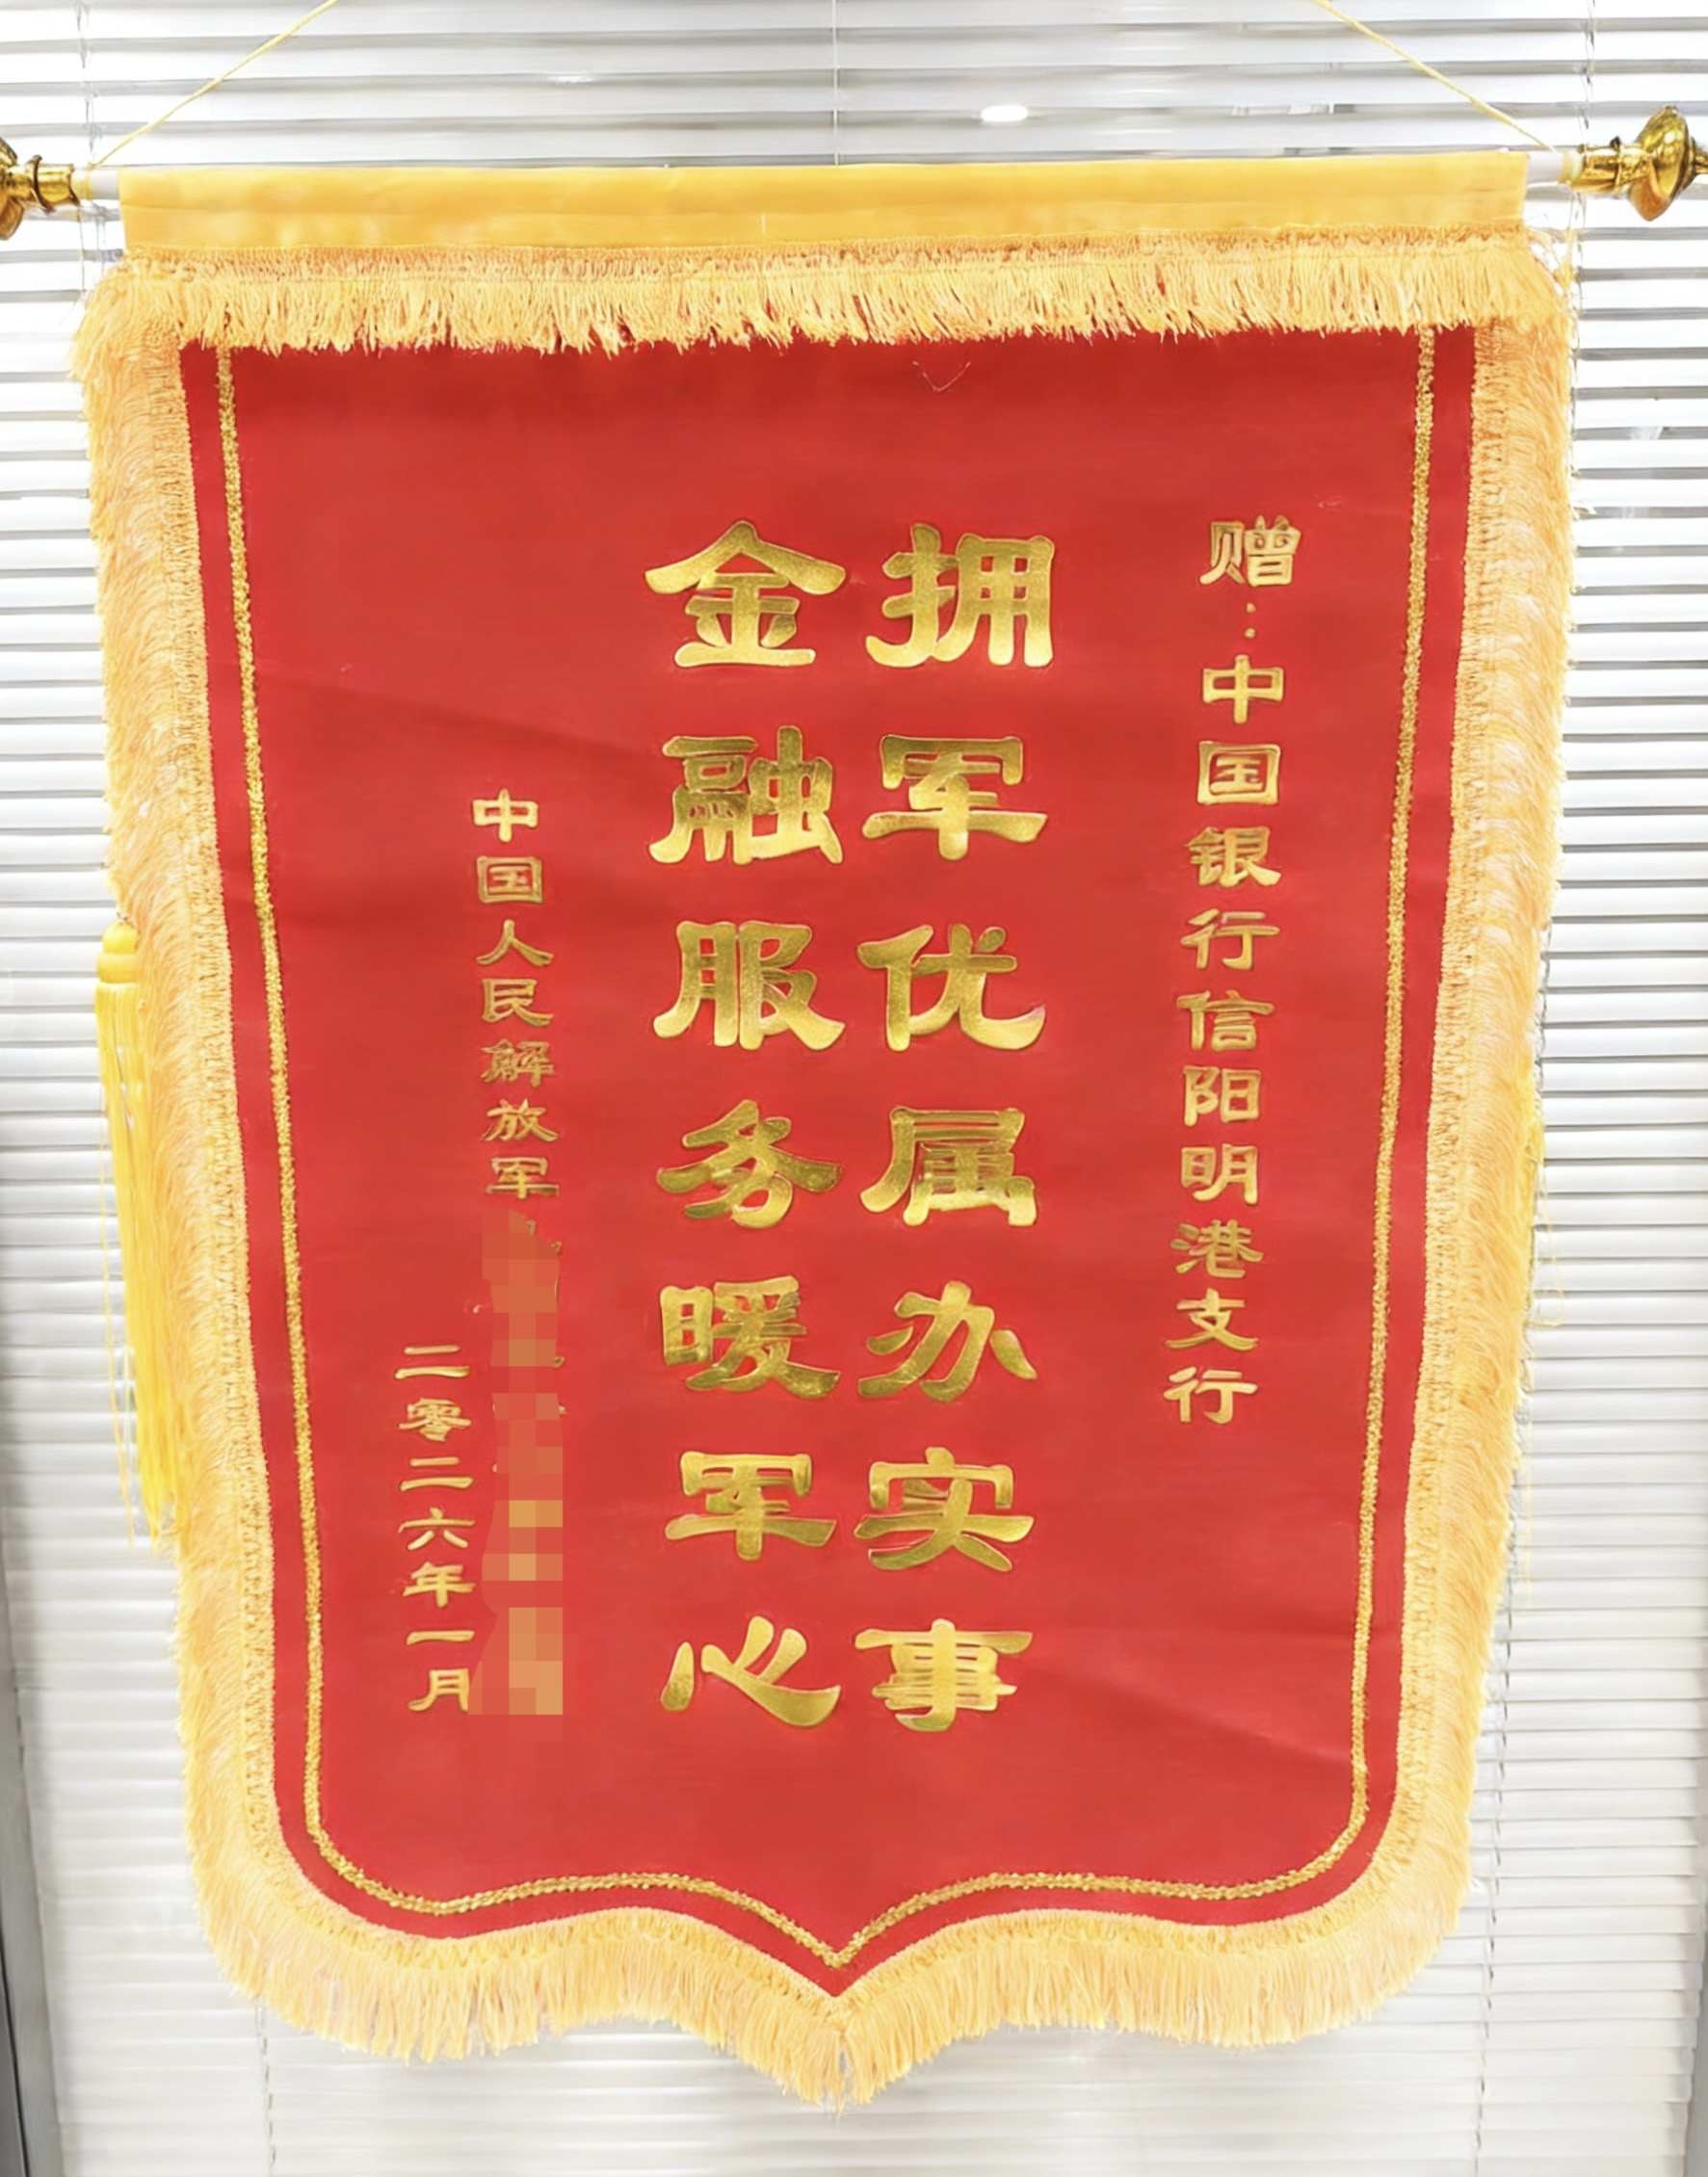 赠：中国银行信阳明港支行
拥军优属办实事
金融服务暖军心
中国人民解放军
二零二六年一月